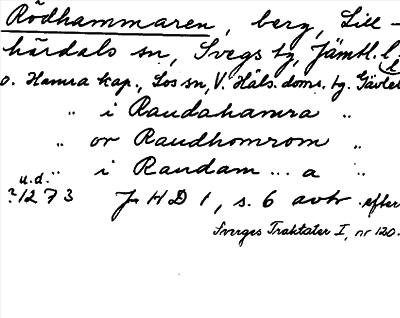 Rödhammaren, berg, Lill-
härdals sn, Svegs tg, Jämtl. l.
o. Hamra kap., Los sn, V. Häls. doms. tg. Gävleb. l.
" i Raudahamra "
" or Raudhomrom "
" i Raudam...a "
u.d.
?1273 JHD 1, s. 6 avtr. efter
Sverges Traktater I, nr 120.